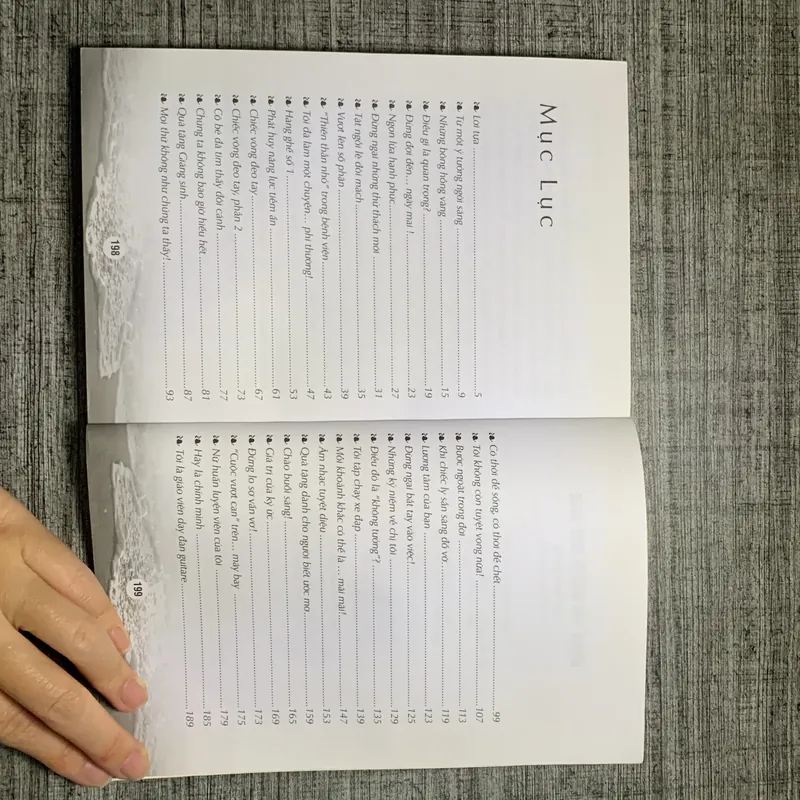 Mục Lục
❧ Lời tựa ........ 5
❧ Từ một ý tưởng ngời sáng ........ 9
❧ Những bông hồng vàng ........ 15
❧ Điều gì là quan trọng? ........ 19
❧ Đừng đợi đến... ngày mai ! ........ 23
❧ Ngọn lửa hạnh phúc ........ 27
❧ Đừng ngại những thử thách mới ........ 31
❧ Tật ngồi lê đôi mách ........ 35
❧ Vượt lên số phận ........ 39
❧ "Thiên thần nhỏ" trong bệnh viện ........ 43
❧ Tôi đã làm một chuyện... phi thường! ........ 47
❧ Hàng ghế số 1 ........ 53
❧ Phát huy năng lực tiềm ẩn ........ 61
❧ Chiếc vòng đeo tay ........ 67
❧ Chiếc vòng đeo tay, phần 2 ........ 73
❧ Cô bé đã tìm thấy đôi cánh ........ 77
❧ Chúng ta không bao giờ hiểu hết ........ 81
❧ Quà tặng Giáng sinh ........ 87
❧ Mọi thứ không như chúng ta thấy! ........ 93
198
❧ Có thời để sống, có thời để chết ........ 99
❧ Tôi không còn tuyệt vọng nữa! ........ 107
❧ Bước ngoặt trong đời ........ 113
❧ Khi chiếc ly sẵn sàng đổ vỡ ........ 119
❧ Lương tâm của bạn ........ 123
❧ Đừng ngại bắt tay vào việc! ........ 125
❧ Những kỷ niệm về chị tôi ........ 129
❧ Điều đó là "không tưởng"? ........ 135
❧ Tôi tập chạy xe đạp ........ 139
❧ Mỗi khoảnh khắc có thể là ... mãi mãi! ........ 147
❧ Âm nhạc tuyệt diệu ........ 153
❧ Quà tặng dành cho người biết ước mơ ........ 159
❧ Chào buổi sáng! ........ 165
❧ Giá trị của ký ức ........ 169
❧ Đừng lo sợ vẩn vơ! ........ 173
❧ "Cuộc vượt cạn" trên... máy bay ........ 175
❧ Nữ huấn luyện viên của tôi ........ 179
❧ Hãy là chính mình ........ 185
❧ Tôi là giáo viên dạy đàn guitare ........ 189
199